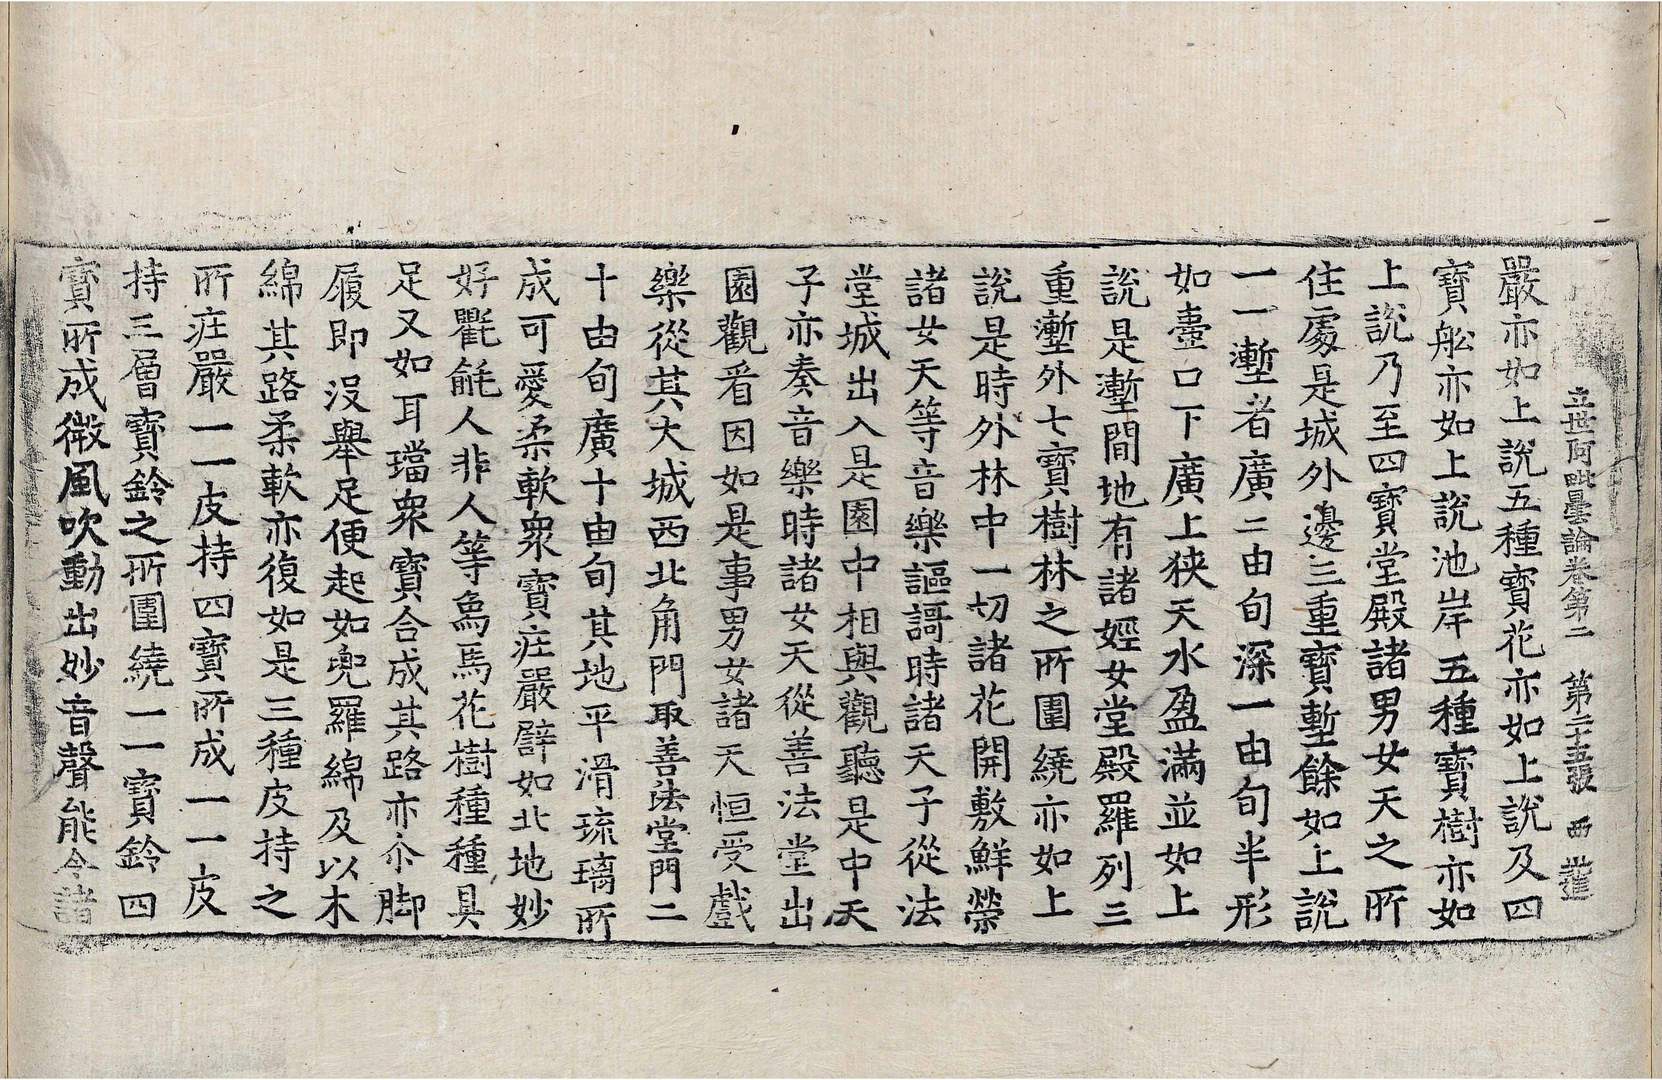 立世阿毗曇論卷第二 第二十五張 西
嚴亦如上說五種寶花亦如上說及四
寶舩亦如上說池岸五種寶樹亦如
上說乃至四寶堂殿諸男女天之所
住處是城外邊三重寶壍餘如上說
一一壍者廣二由旬深一由旬半形
如壷口下廣上狹天水盈滿並如上
說是壍間地有諸婬女堂殿羅列三
重壍外七寶樹林之所圍繞亦如上
說是時外林中一切諸花開敷鮮榮
諸女天等音樂謳謌時諸天子從法
堂城出入是園中相與觀聽是中天
子亦奏音樂時諸女天從善法堂出
園觀看因如是事男女諸天恒受戲
樂從其大城西北角門取善法堂門二
十由旬廣十由旬其地平滑琉璃所
成可愛柔軟衆寶莊嚴譬如北地妙
好氍毹人非人等鳥馬花樹種種具
足又如耳璫衆寶合成其路亦尒脚
履即沒舉足便起如兜羅綿及以木
綿其路柔軟亦復如是三種皮持之
所莊嚴一一皮持四寶所成一一皮
持三層寶鈴之所圍繞一一寶鈴四
寶所成微風吹動出妙音聲能令諸